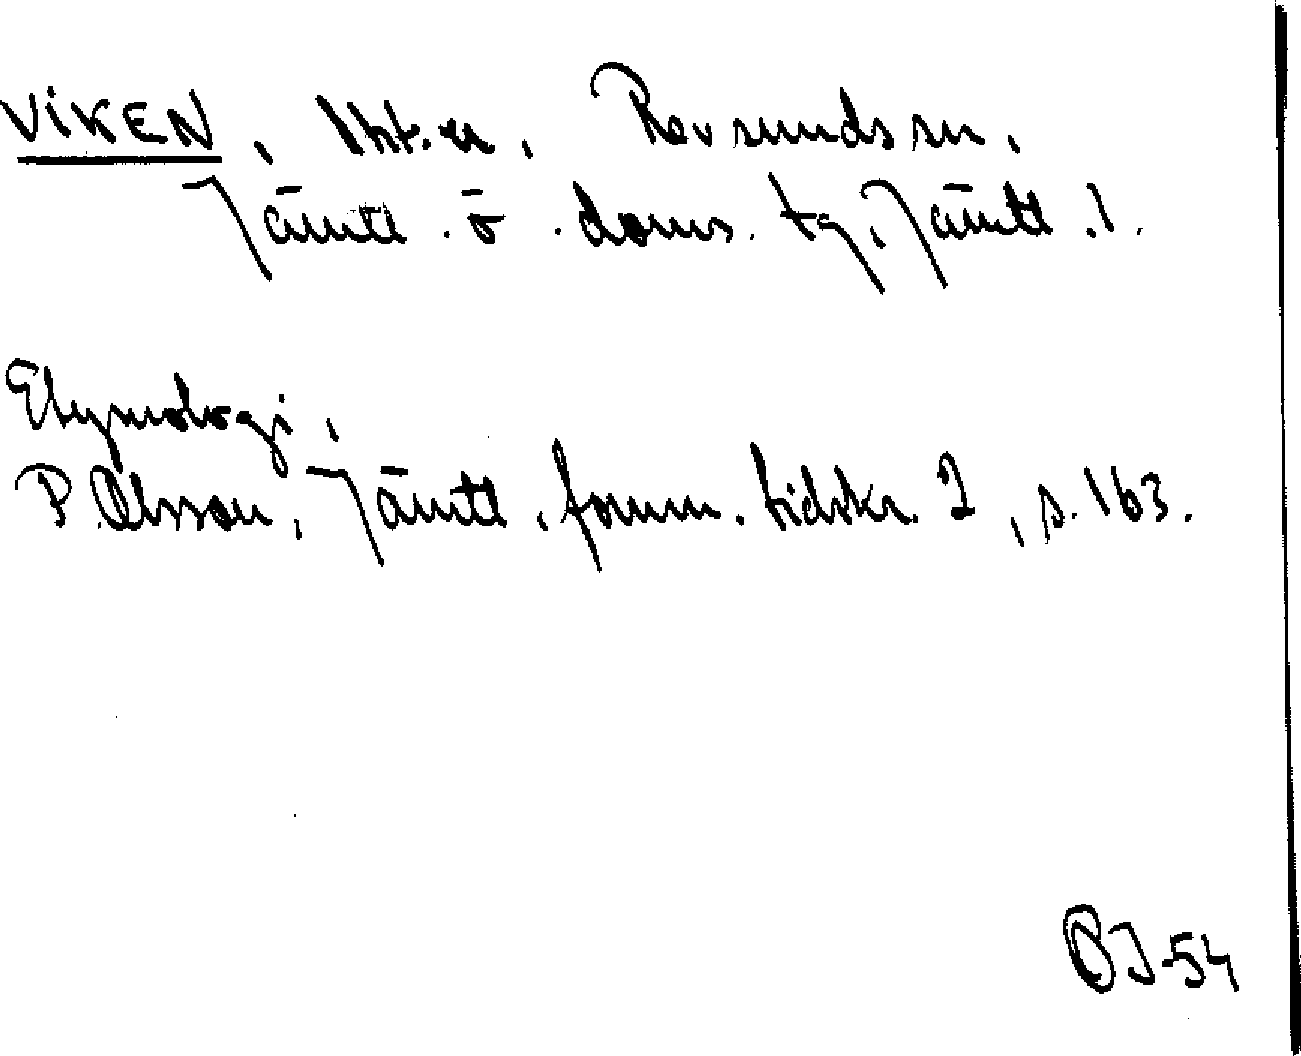 VIKEN, Revsunds sn,
Jämtl. ö. doms. tg, Jämtl. l.
Etymologi,
P. Olsson, Jämtl. fornm. tidskr. 2, s. 163.
BJ-54